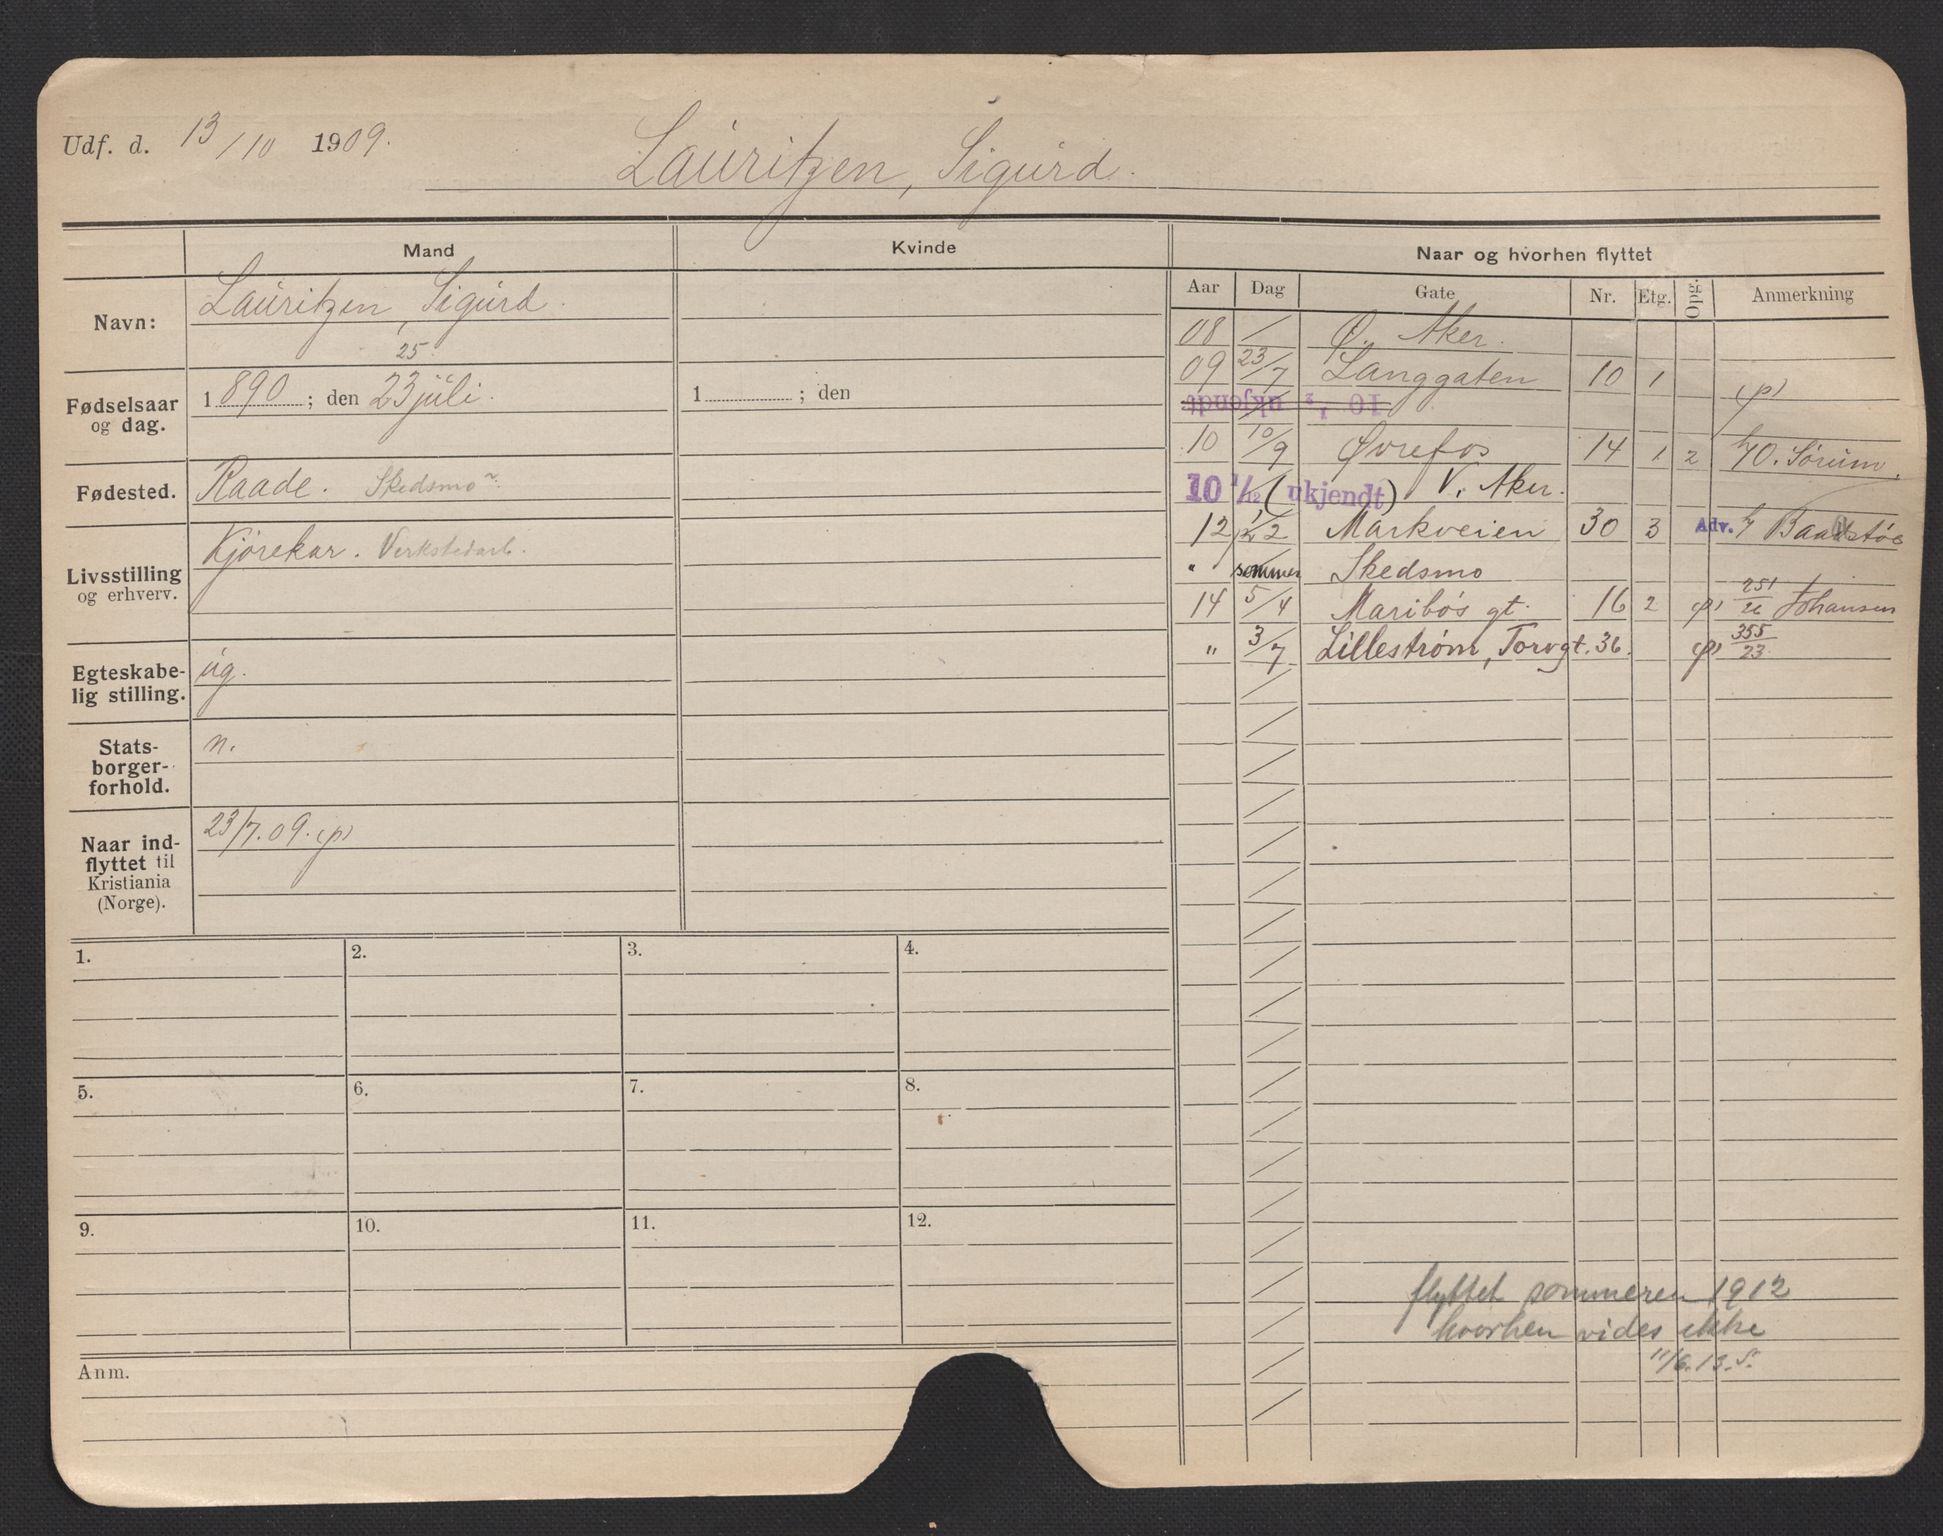 Udf. d. 13/10 1909.
Lauritzen, Sigurd.
Mand
Kvinde
Naar og hvorhen flyttet
Navn: Lauritzen, Sigurd.
Aar Dag Gate Nr. Etg. Opg. Anmerkning
08 / Ø. Aker.
09 23/7 Langgaten 10 1 (p)
10 1/2 ukjendt
10 10/9 Øvrefos 14 1 2 O. Sørum.
10 1/12 (ukjendt) V. Aker.
12 1/2 2 Markveien 30 3 Adv.
" sommer Skedsmo
14 5/4 Maribos gt. 16 2 (p) 251/26 Johansen
" 3/7 Lillestrøm, Torvgt. 36. (p) 355/23
25
Fødselsaar og dag. 1890; den 23 juli.
1 ; den
Fødested. Raade. Skedsmo
Livsstilling og erhverv. Kjørekar. Verkstedarb.
Egteskabe-
lig stilling. ug.
Stats-
borger-
forhold. n.
Naar ind-
flyttet til
Kristiania
(Norge). 23/7.09. (p)
1. 2. 3. 4.
5. 6. 7. 8.
9. 10. 11. 12.
flyttet sommeren 1912
hvorhen vides ikke
11/6.13. S.
Anm.